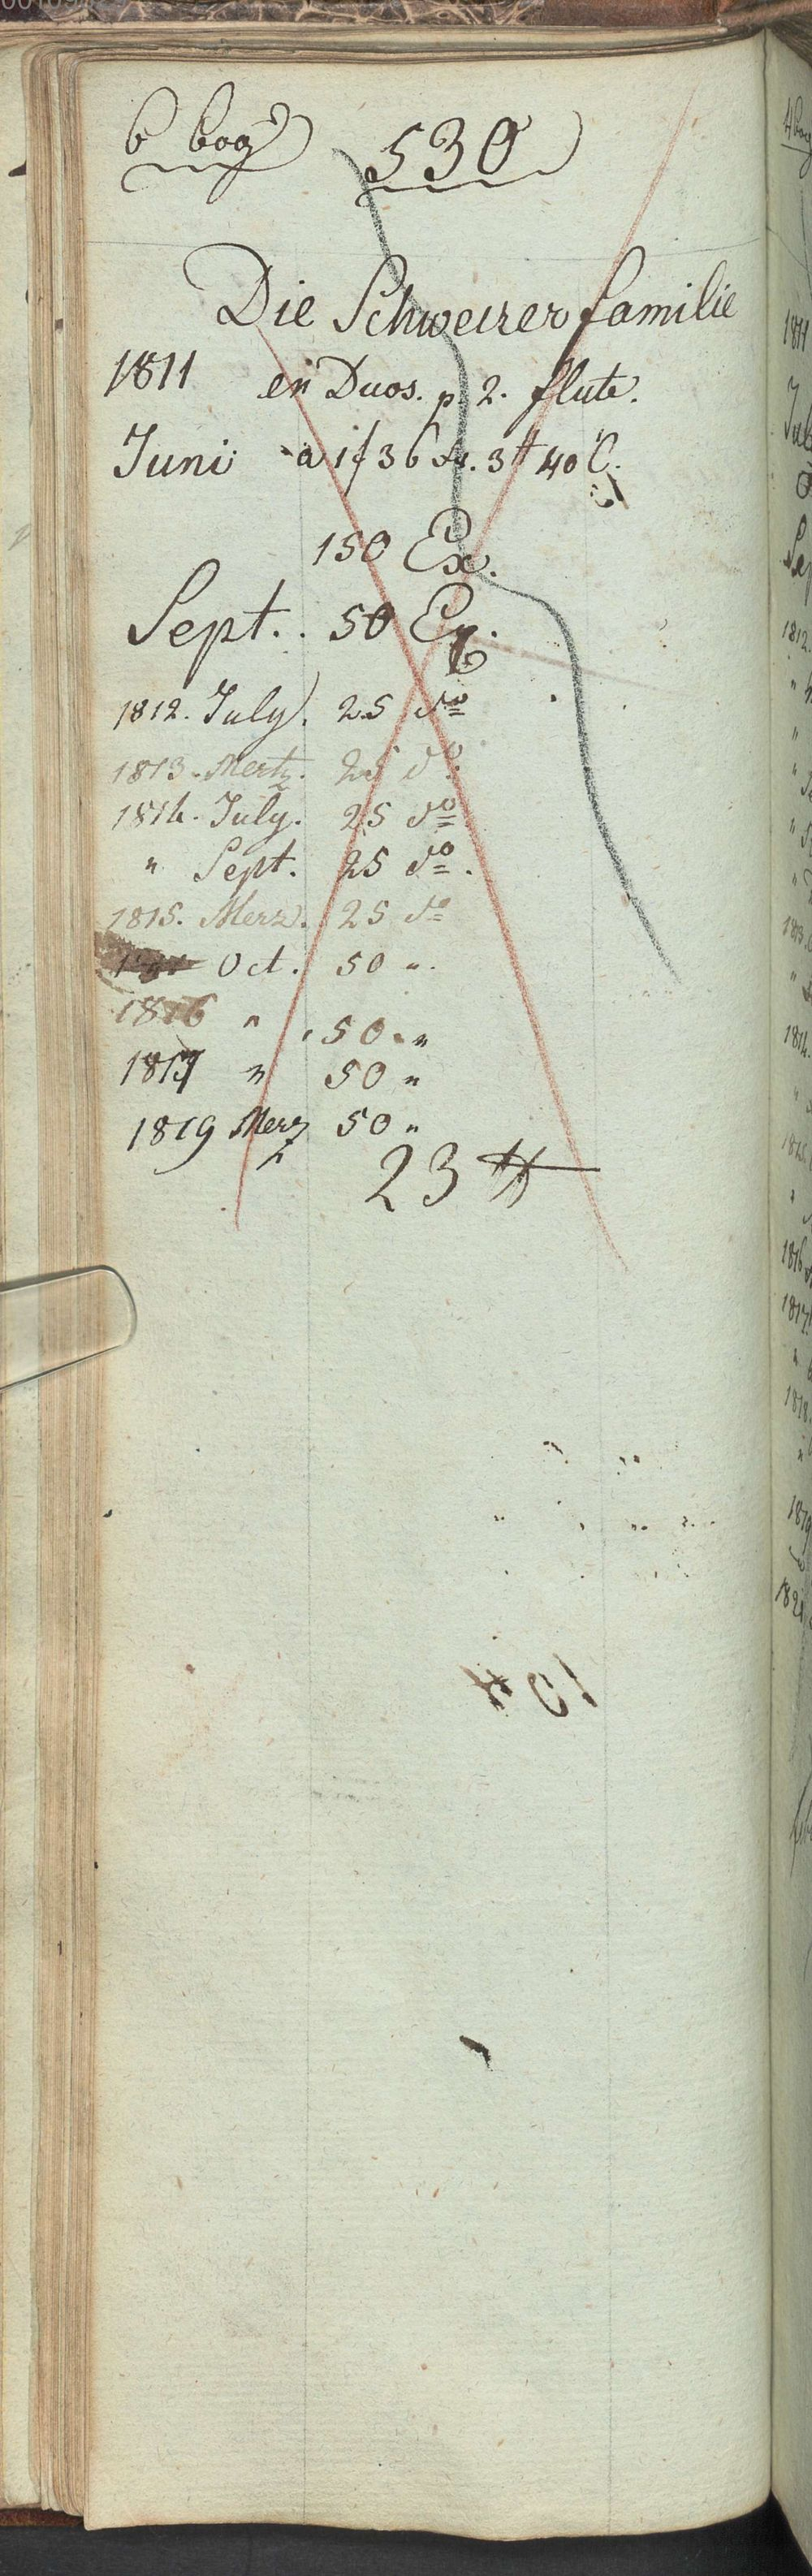 6 bog 530
Die Schweizer familie
1811 en Duos. p. 2. flute.
Juni a 1f 36 xr. 3 tt 40 C.
150 Ex.
Sept.. 50 Ex.
1812. July. 25 do
1813. Mertz. 25 do
1814. July. 25 do
" Sept. 25 do.
1815. Merz. 25 do
Oct. 50 ".
1816 " 50. "
1817 " 50 "
1819 Merz 50 "
23 tt